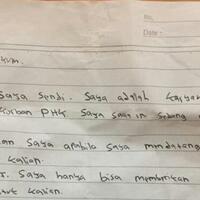 No.
Date :
Saya Sendi. Saya adalah
korban PHK. Saya saat ini sedang
Saya apabila saya mendatang
kalian.
Saya hanya bisa memberikan
kalian.